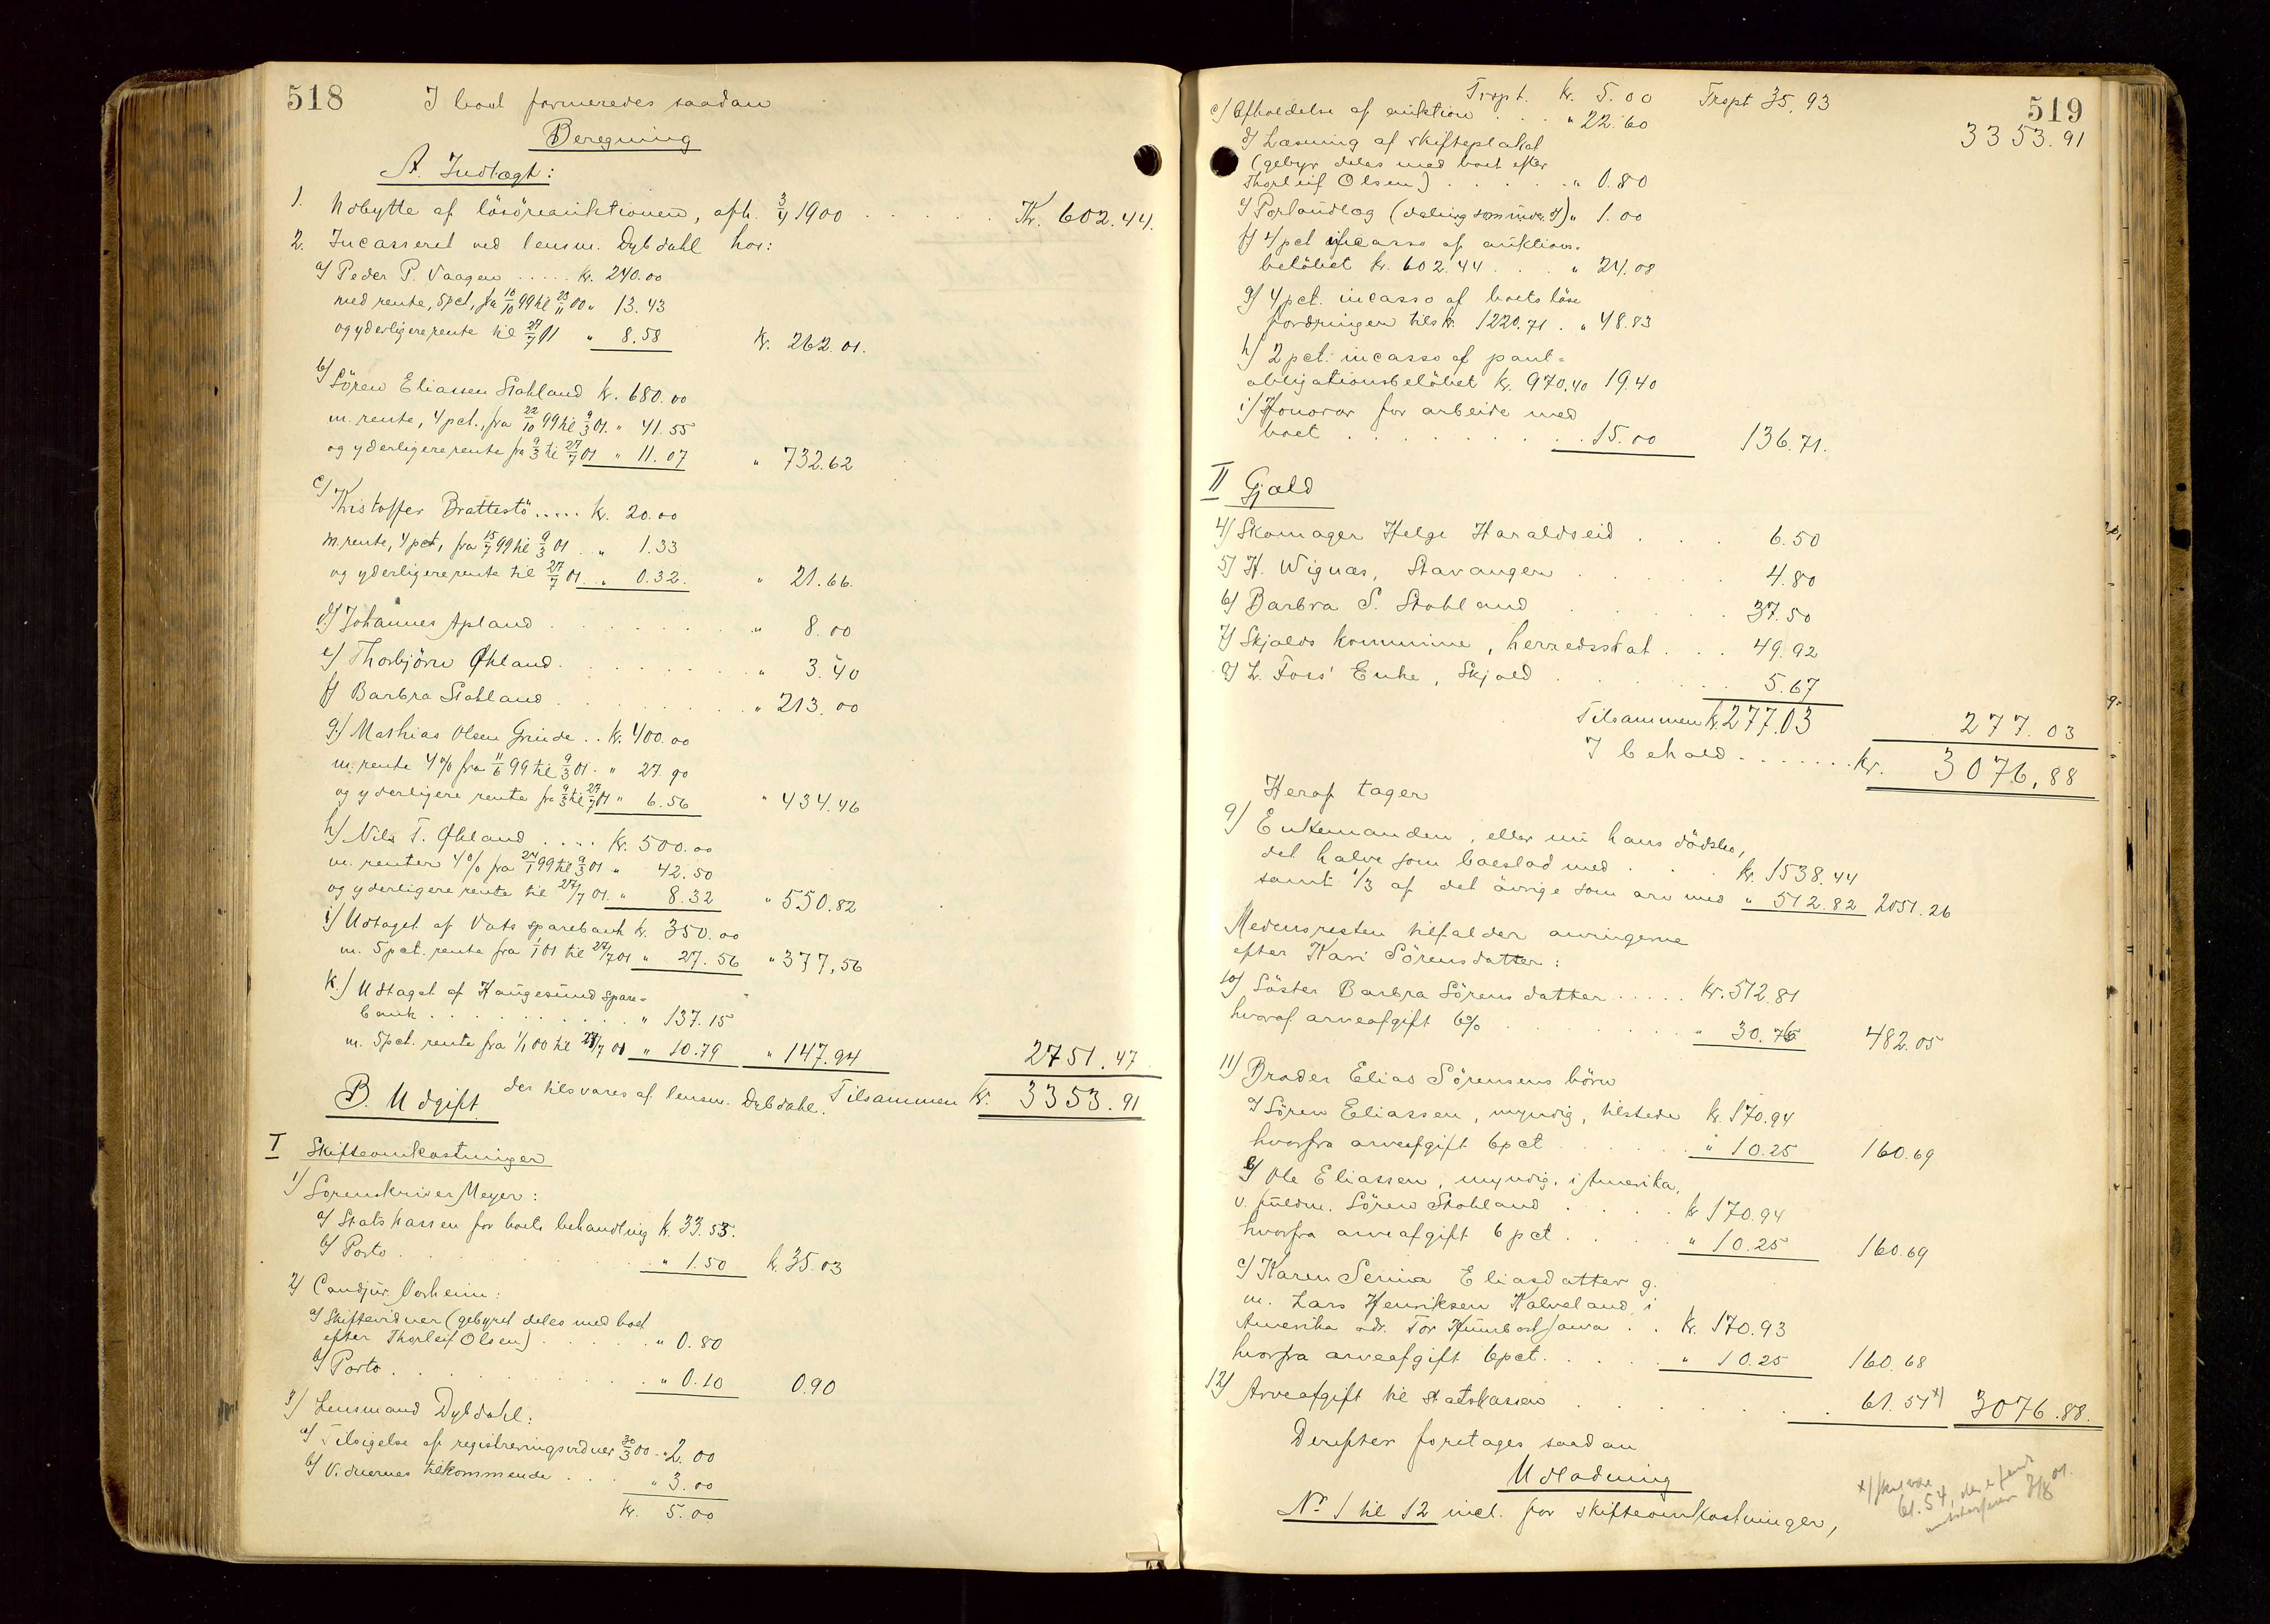 518
I boet formeredes saadan
Beregning
A. Indtægt:
1. Udbytte af løsøreauktionen, afh. 3/4 1900 . . . . . . Kr. 602.44.
2. Incasseret ved lensm. Dybdahl hos:
a/ Peder P. Vaagen ..... Kr. 240.00
med rente, 5 pct, fra 16/10 99 til 23/11 00 " 13.43
og yderligere rente til 27/7 01 " 8.58 Kr. 262.01.
b/ Sören Eliassen Stohland Kr. 680.00
m. rente, 4 pct., fra 22/10 99 til 9/3 01. " 41.55
og yderligere rente fra 9/3 til 27/7 01 " 11.07 " 732.62
c/ Kristoffer Brattestö ..... Kr. 20.00
m. rente, 4 pct, fra 15/7 99 til 9/3 01 . " 1.33
og yderligere rente til 27/7 01 . " 0.32. " 21.66.
d/ Johannes Apland . . . . . . " 8.00
e/ Thorbjörn Øhland . . . . . . " 3.40
f/ Barbra Stohland . . . . . . " 213.00
g/ Mathias Olsen Grinde . . Kr. 400.00
m. rente 4% fra 11/6 99 til 9/3 01. " 27.90
og yderligere rente fra 9/3 til 27/7 01 " 6.56 " 434.46
h/ Nils T. Øhland . . . . Kr. 500.00
m. renter 4% fra 24/1 99 til 9/3 01 " 42.50
og yderligere rente til 27/7 01. " 8.32 " 550.82
i/ Udtaget af Vats sparebank Kr. 350.00
m. 5 pct. rente fra 1/1 01 til 27/7 01 " 27.56 " 377,56
k./ Udtaget af Haugesund spare=
bank . . . . . . . . . " 137.15
m. 5 pct. rente fra 1/1 00 til 27/7 01 " 10.79 " 147.94 2751.47
der tilsvares af lensm. Dybdahl. Tilsammen Kr. 3353.91
B. Udgift
I Skifteomkostninger
1/ Sorenskriver Meyer:
a/ Statskassen for boets behandling K. 33.53.
b/ Porto . . . . . . " 1.50 K. 35.03
2/ Candjur. Vorheim:
a/ Skiftevidner (gebyret deles med boet
efter Thorleif Olsen) . . . . . " 0.80
b/ Porto . . . . . . . " 0.10 0.90
3/ Lensmand Dybdahl:
a/ Tilsigelse af registreringsvidner 30/3 00 - " 2.00
b/ Vidnernes tilkommende . . . " 3.00
Kr. 5.00
519
Trspt. Kr. 5.00 Trspt 35,93 3353.91
c/ Afholdelse af auktion . . . " 22.60
d/ Læsning af skifteplakat
(gebyr deles med boet efter
Thorleif Olsen) . . . . . " 0.80
e/ Forlandlog (deling som under d) " 1.00
f/ 4 pct incasso af auktions-
belöbet Kr. 602.44 . . . " 24.08
g/ 4 pct. incasso af boets löse
fordringer tils Kr. 1220.71 . " 48.83
h/ 2 pct. incasso af pant=
obligationsbelöbet Kr. 970.40 19.40
i/ Honorar for arbeide med
boet . . . . . . . . . . 15.00 136.71.
II Gjæld
4/ Skomager Helge Haraldseid . . . 6.50
5/ H. Wignæs, Stavanger . . . . 4.80
6/ Barbra S. Stohland . . . . 37.50
7/ Skjolds kommune, herredsskat . . . 49.92
8/ L. Foss' Enke, Skjold . . . . 5.67
Tilsammen Kr. 277.03 277.03
I behold . . . . . . Kr. 3076,88
Heraf tager
9/ Enkemanden, eller nu hans dödsbo,
det halve som boeslod med . . . Kr. 1538.44
samt 1/3 af det övrige som arv med " 512.82 2051.26
Medens resten tilfalder arvingerne
efter Kari Sörensdatter:
10/ Söster Barbra Sörensdatter . . . . . Kr. 512.81
hvoraf arveafgift 6% . . . . . . " 30.76 482.05
11/ Broder Elias Sörensens börn
a/ Sören Eliassen, myndig, tilstede Kr. 170.94
hvorfra arveafgift 6 pct . . . . . " 10.25 160.69
b/ Ole Eliassen, myndig, i Amerika,
v. fuldm. Sören Stohland . . . . . Kr 170.94
hvorfra arveafgift 6 pct . . . . " 10.25 160.69
c/ Karen Serina Eliasdatter g.
m. Lars Henriksen Kalveland, i
Amerika adr. Tor Humbort Jowa . . Kr. 170.93
hvorfra arveafgift 6 pct. . . . . " 10.25 160.68
12/ Arveafgift til statskassen . . . . . . 61.51 x) 3076.88.
Derefter foretages saadan
Udlodning
Nr 1 til 12 incl. for skifteomkostninger,
x/ skal være
61.54,
7/8 01.